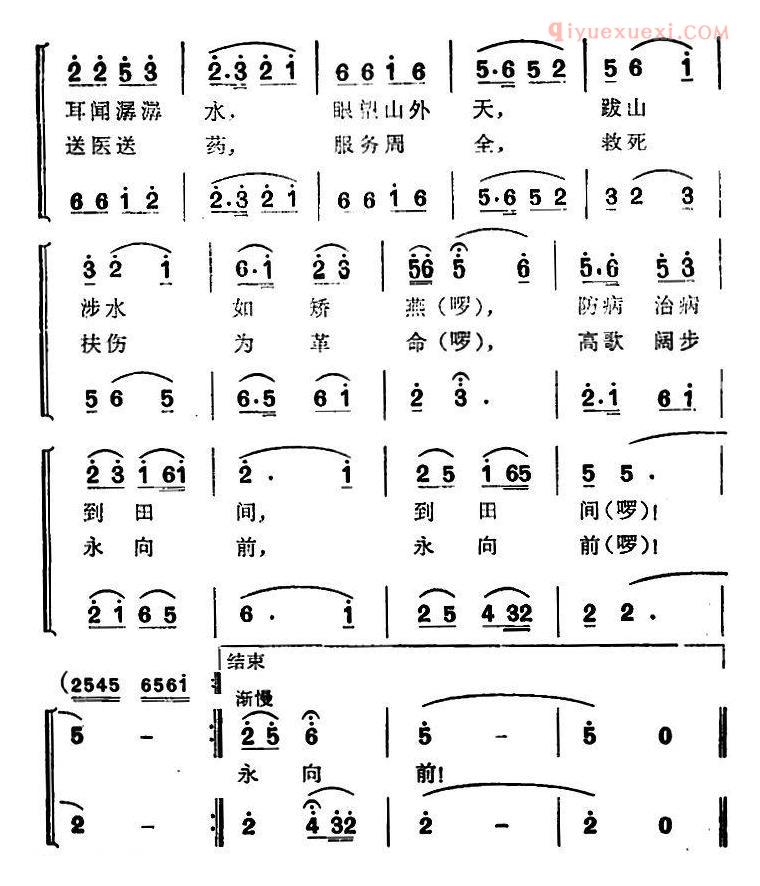 qiyuexuexi.COM
2 2 5 3 | 2·3 2 1 | 6 6 1 6 | 5·6 5 2 | 5 6 1 |
耳闻潺潺 水, 眼望山外 天, 跋山
送医送 药, 服务周 全, 救死
6 6 1 2 | 2·3 2 1 | 6 6 1 6 | 5·6 5 2 | 3 2 3 |
3 2 1 | 6·1 2 3 | 56 5 6 | 5·6 5 3 |
涉水 如 矫 燕(啰), 防病 治病
扶伤 为 革 命(啰), 高歌 阔步
5 6 5 | 6·5 6 1 | 2 3 · | 2·1 6 1 |
2 3 1 61 | 2 · 1 | 2 5 1 65 | 5 5 · |
到 田 间, 到 田 间(啰)!
永 向 前, 永 向 前(啰)!
2 1 6 5 | 6 · 1 | 2 5 4 32 | 2 2 · |
(2545 6561 :
结束
渐慢
5 - :‖ 2 5 6 | 5 - | 5 0 ‖
永 向 前!
2 - :‖ 2 4 32 | 2 - | 2 0 ‖